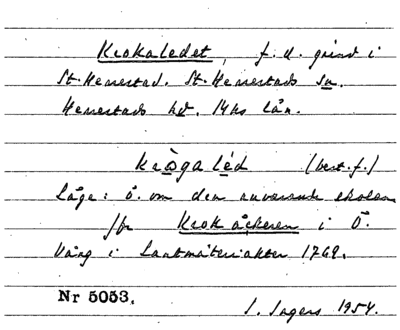 Krokaledet, f.d. grind i
St. Herrestad. St. Herrestads sn.
Herrestads hd. M-hs län.
Krògaléd (best.f.)
Läge: ö. om den nuvarande skolan
Jfr Krokåckeren i Ö.
Vång i Lantmäteriakter 1769.
Nr 5053.
I. Ingers 1954.